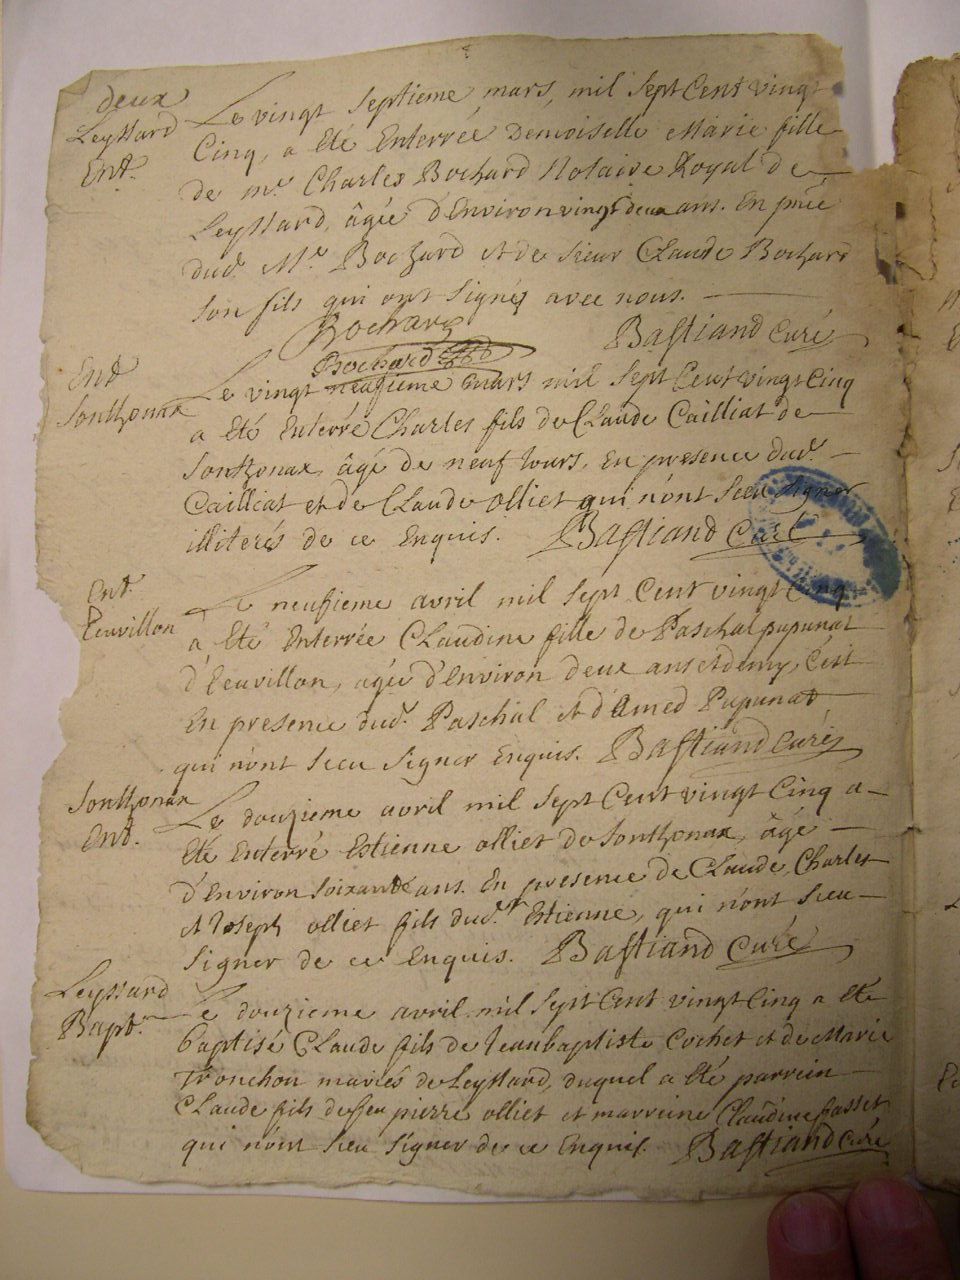 deux
Leyssard
Ent.
Le vingt Septieme mars, mil Sept Cent vingt
Cinq, a Eté Enterrée Demoiselle Marie fille
de mr. Charles Bochard Notaire Royal de
Leyssard, âgée d'Environ vingt deux ans. En
dud. Me. Bochard et de Sieur Claude Bochard
son fils qui ont Signéz avec nous.
Bochard
Bastiand Curé
Bochard
Ent
Sonthonax
Le vingt neufieme mars mil Sept Cent vingt Cinq
a Eté Enterré Charles fils de Claude Cailliat de
Sonthonax âgé de neuf Jours, En presence dud.
Cailliat et de Claude olliet qui n'ont Sceu Signer
illiterés de ce Enquis. Bastiand Curé
Ent.
Le neufieme avril mil Sept Cent vingt Cinq
à Eté Enterrée Claudine fille de Paschal pupunat
âgée d'Environ deux ans et demy, C'est
En presence dud. Paschal et d'Amed Pupunat,
qui n'ont Sceu Signer Enquis. Bastiand Curé
Sonthonax
Ent.
Le douzieme avril mil Sept Cent vingt Cinq a
Eté Enterré Estienne olliet de Sonthonax, âgé
d'Environ Soixante ans. En presence de Claude, Charles
et Joseph olliet fils dud. Estienne, qui n'ont Sceu
Signer de ce Enquis. Bastiand Curé
Leyssard
Bapt.
Le douzieme avril mil Sept Cent vingt Cinq a Eté
baptisé Claude fils de Jeanbaptiste Cochet et de Marie
Tronchon mariés de Leyssard, duquel a Eté parrein
Claude fils de feu pierre olliet et marreine Claudine
qui n'ont Sceu Signer de ce Enquis. Bastiand Curé